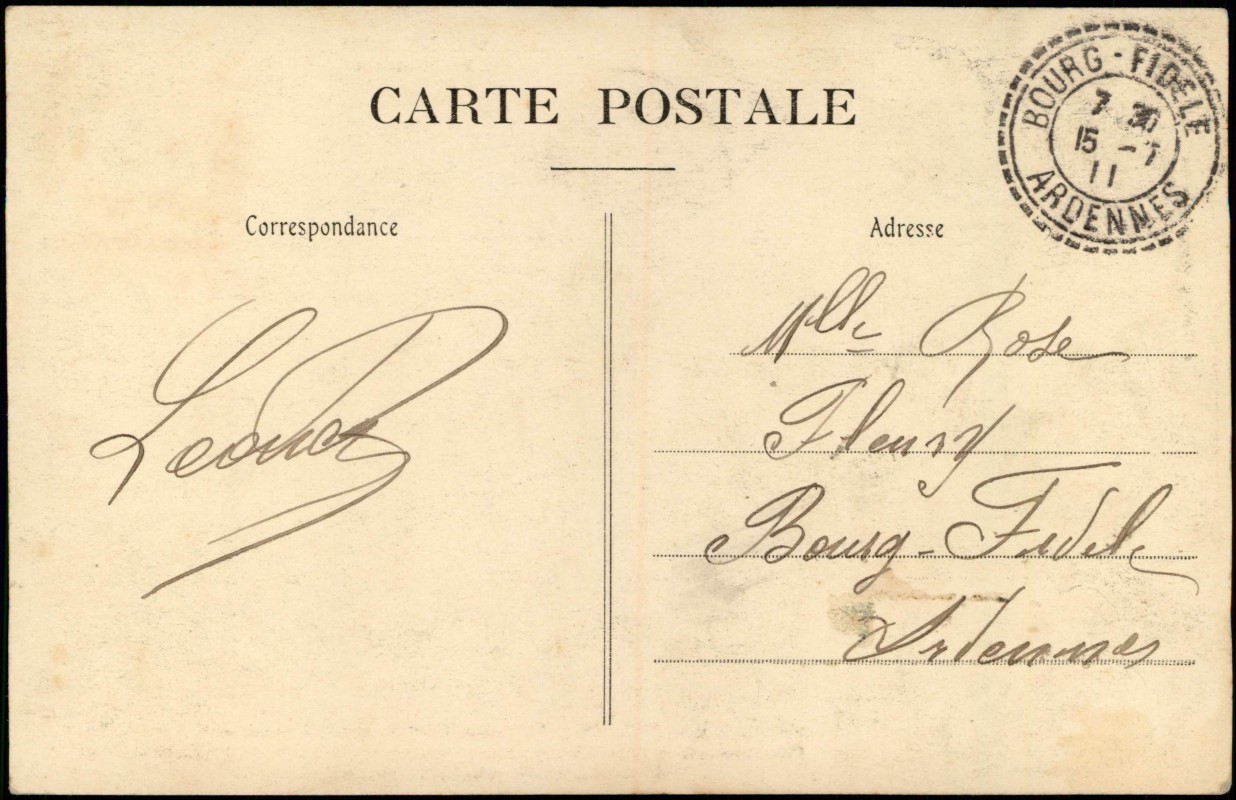 CARTE POSTALE
BOURG-FIDELE
7 30
15 -7
11
ARDENNES
Correspondance
Adresse
Mlle Rose
Fleury
Bourg-Fidele
Ardennes